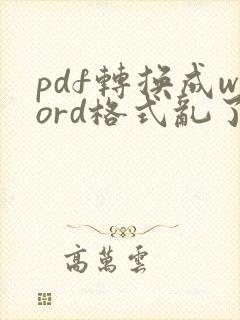 pdf轉換成w
ord格式亂了
高萬雲